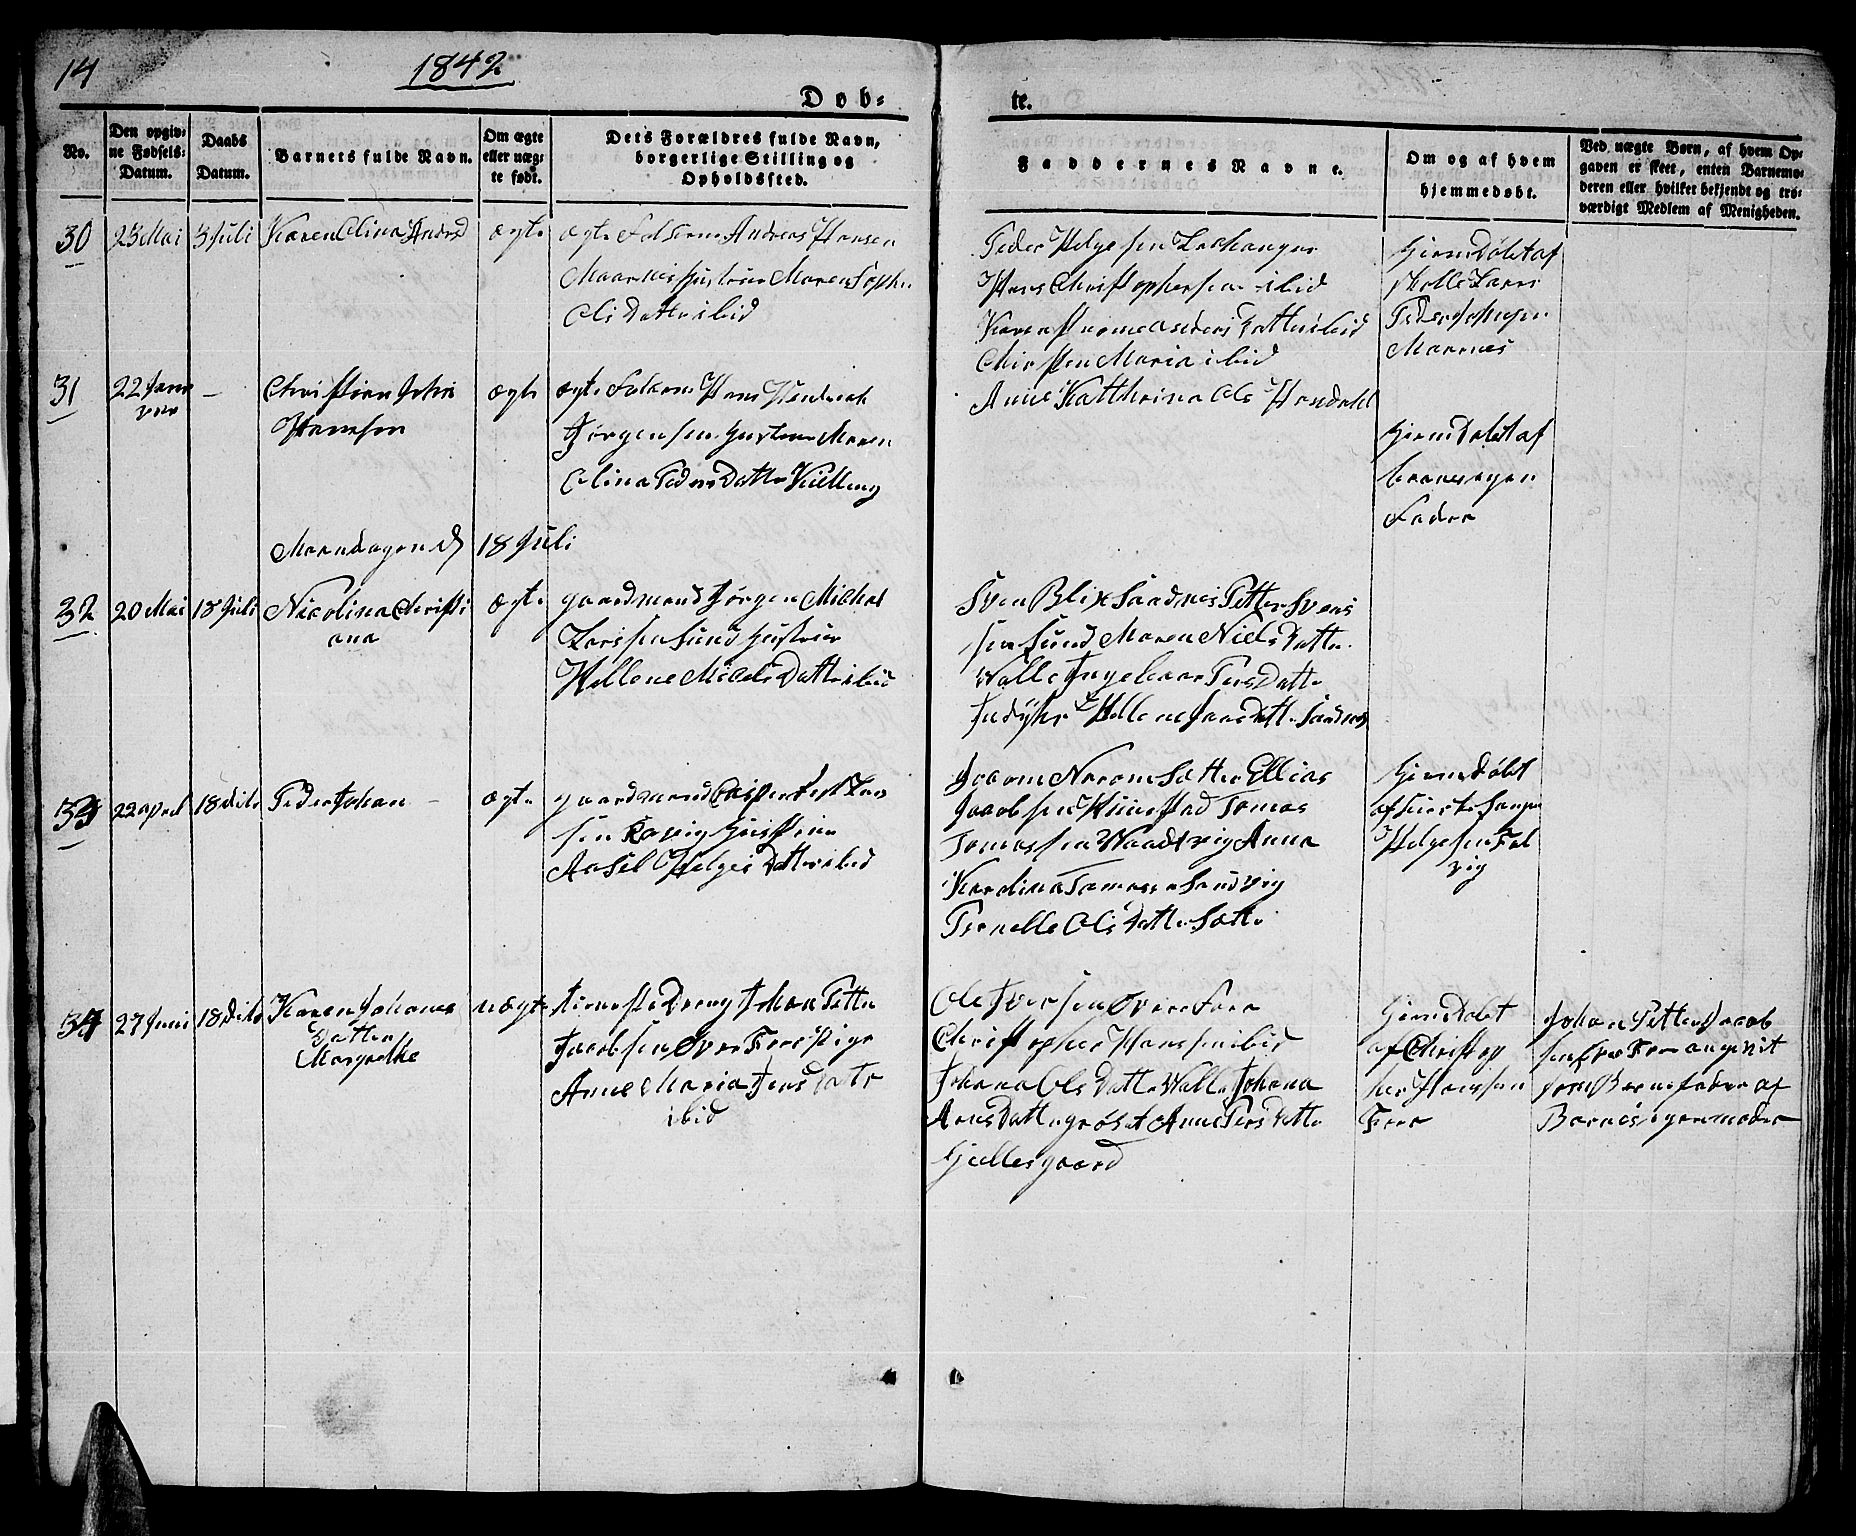 14
1842
Døb-
te.
No.
Den opgiv-
ne Fødsels-
Datum.
Daabs
Datum.
Barnets fulde Navn.
Om ægte
eller uæg-
te født.
Dets Forældres fulde Navn,
borgerlige Stilling og
Opholdssted.
Faddernes Navne.
Om og af hvem
hjemmedøbt.
Ved uægte Børn, af hvem Op-
gaven er skeet, enten Barnemo-
deren eller hvilket bekjendt og tro-
værdigt Medlem af Menigheden.
30
23 Mai
3 Juli
Karen Olina Andrsd
ægte
ægte Folkene Anders Hansen
Maarnes Hustrue Maren Sophie
Ols Datter ibid
Peder Helgesen
Hans Christophersen ibid
Karen Anders Datter ibid
Maria ibid
Anne Kathrina Ols
Hjemdøbt af
Peder
Maarnes
31
22 Janu
var
–
Christian John
Hansen
ægte
ægte Folkene Hans Hendrich
Jørgensen Hustrue Maren
Olina Peders Datter
Hjemdøbt af
barnes egen
Fader
Marndagen d
18 Juli
32
20 Mai
18 Juli
Nicolina Christi
ana
ægte
gaardmand Jørgen Michal
Larssen Sund Hustrue
Hellene Michels Datter ibid
Sven Blix Sandnes Petter Svens
sen Sund Maren Niels Datter
Walle Ingebaar Pers Datter
Hellene Jans Datter Sandnes
33
22 april
18 dito
Peder Johan
ægte
gaardmand Casper
sen Hustrue
Axsel Helges Datter ibid
Sætter Ellias
Jacobsen Tomas
Tomassen Anna
Kardina Tomassen Sandvig
Pernelle Ols Datter Sætte
Hjemdøbt
af
Helgesen Fel
vig
34
27 Juni
18 dito
Karen Johanes
Datter
Margrethe
uægte
Tieneste Dreng Johan Petter
Jacobsen Øvre Fore Pige
Anne Maria Jens Datr
ibid
Ole Iversen Øvre Fore
Christopher Hanssen ibid
Johana Ols Datter Walle Johana
Arns Datter grøset Anne Pers Datter
Gjellesgaard
Hjemdøbt
af Christop
her Hanssen
Fore
Johan Petter Jacob
sen Øvre Fore angivit
som Barnefader af
Barnes egen moder